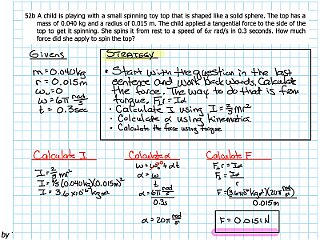 52b A child is playing with a small spinning toy top that is shaped like a solid sphere. The top has
a mass of 0.040 kg and a radius of 0.015 m. The child applied a tangential force to the side of the
top to get it spinning. She spins it from rest to a speed of 6π rad/s in 0.3 seconds. How much
force did she apply to spin the top?
Givens
m=0.040kg
r=0.015m
ω₀=0
ω=6π rad/s
t=0.3sec
STRATEGY
• Start with the question in the last
sentence and work backwards. Calculate
the force. The way to do that is from
torque. Fr=Iα
• Calculate I using I=2/5mr²
• Calculate α using kinematics
• Calculate the force using torque
Calculate I
I=2/5mr²
I=2/5(0.040kg)(0.015m)²
I=3.6x10⁻⁶kgm²
Calculate α
ω=ω₀+αt
α=ω/t
α=6π rad/s
0.3s
α=20π rad/s²
Calculate F
Fr=Iα
F=Iα/r
F=(3.6x10⁻⁶kgm²)(20π rad/s²)
0.015m
F=0.0151N
by: